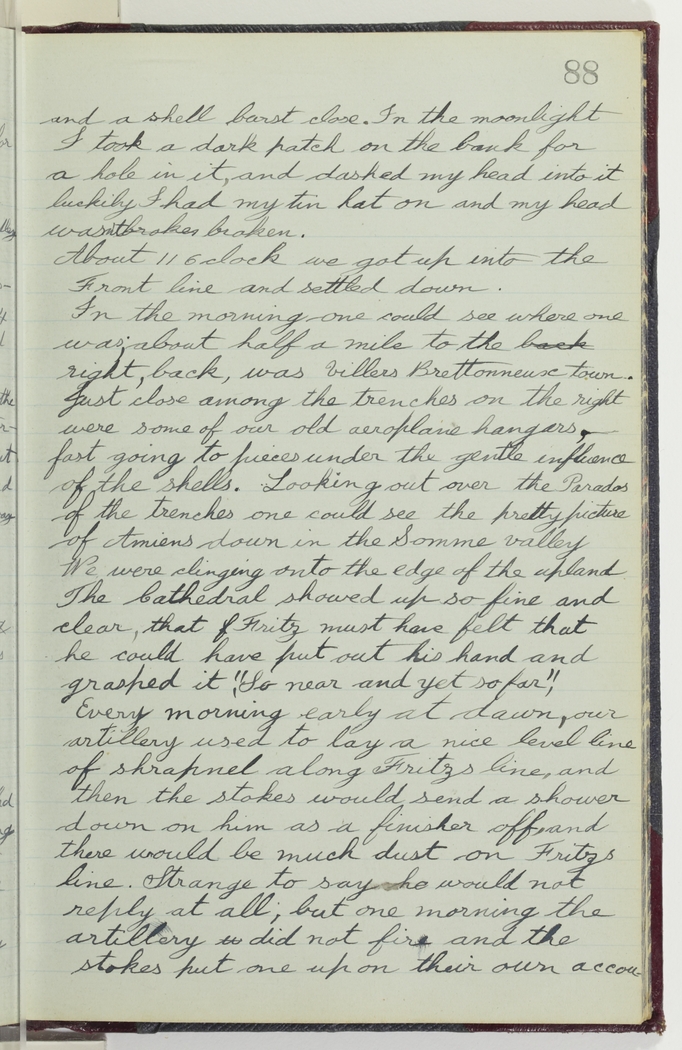 88
and a shell burst close. In the moonlight
I took a dark patch on the bank for
a hole in it, and dashed my head into it
luckily I had my tin hat on and my head
wasn't broken broken.
About 11 oclock we got up into the
Front line and settled down.
In the morning one could see where one
was; about half a mile to the back
right, back, was Villers Brettonneux town.
Just close among the trenches on the right
were some of our old aeroplane hangars,
fast going to pieces under the gentle influence
of the shells. Looking out over the Parados
of the trenches one could see the pretty picture
of Amiens down in the Somme valley
We were clinging onto the edge of the upland
The Cathedral showed up so fine and
clear, that f Fritz must have felt that
he could have put out his hand and
grasped it "So near and yet so far",
Every morning early at dawn, our
artillery used to lay a nice level line
of shrapnel along Fritzs line, and
then the stokes would send a shower
down on him as a finisher off, and
there would be much dust on Fritzs
line. Strange to say he would not
reply at all; but one morning the
artillery did not fire and the
stokes put one up on their own accou-